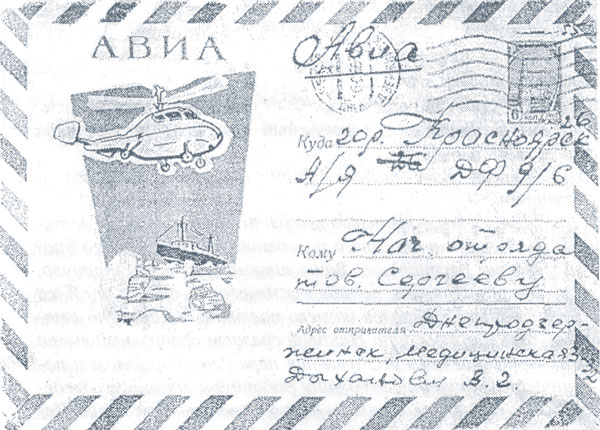 АВИА
Авиа
6
Куда гор. Красноярск 26
А/Я ДФ 9/6
Кому Нач. отряда
тов. Сергееву
Адрес отправителя Днепродзер-
жинск, Медицинская